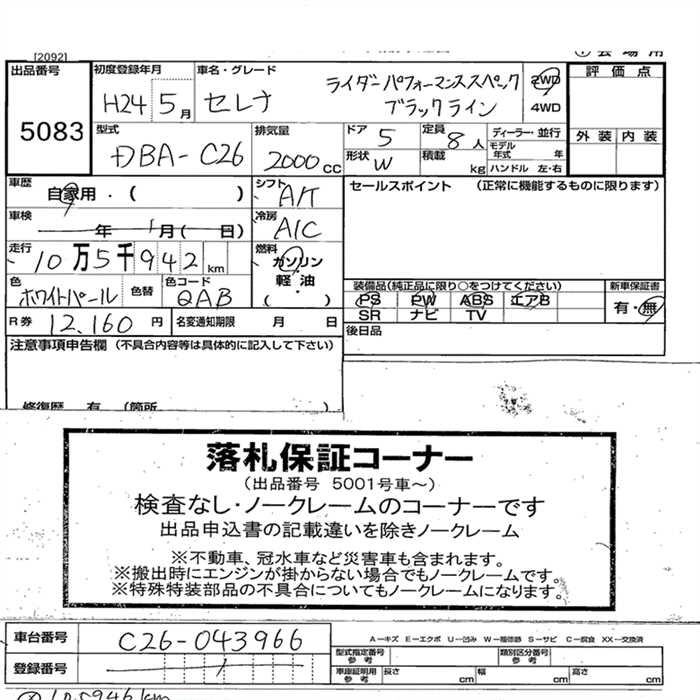 [2092]
出品番号
5083
初度登録年月
H24 5月
車名・グレード
セレナ
ライダーパフォーマンススペック
ブラックライン
2WD
4WD
評価点
外装 内装
型式
DBA-C26
排気量
2000cc
ドア
5
定員
8人
形状
W
積載
kg
ディーラー・並行
モデル
年式 年
ハンドル 左・右
車歴
自家用・( )
シフト
A/T
セールスポイント (正常に機能するものに限ります)
車検
年 月( 日)
冷房
A/C
走行
10万5千942km
燃料
ガソリン
軽油
( )
色
ホワイトパール
色替
色コード
QAB
装備品(純正品に限り○をつけてください)
PS PW ABS エアB
SR ナビ TV
新車保証書
有・無
R券 12,160円
名変通知期限 月 日
後日品
注意事項申告欄 (不具合内容等は具体的に記入して下さい)
修復歴 有 (箇所
落札保証コーナー
(出品番号 5001号車~)
検査なし・ノークレームのコーナーです
出品申込書の記載違いを除きノークレーム
※不動車、冠水車など災害車も含まれます。
※搬出時にエンジンが掛からない場合でもノークレームです。
※特殊特装部品の不具合についてもノークレームになります。
車台番号
C26-043966
A-キズ E-エクボ U-凹み W-補修跡 S-サビ C-腐食 XX-交換済
型式指定番号
参考
類別区分番号
参考
登録番号
車庫証明用
参考
長さ cm 幅 cm 高さ cm